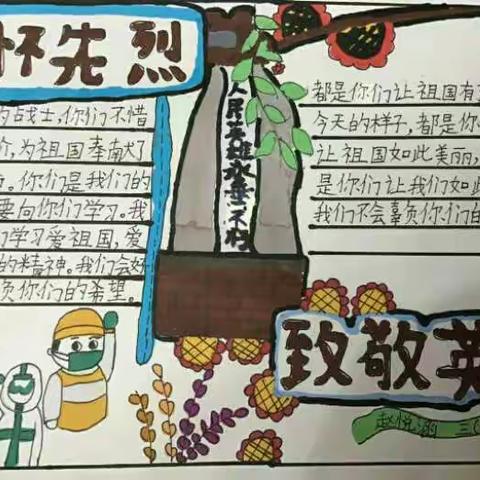 怀先烈
的战士,你们不惜
价,为祖国奉献了
。你们是我们的
要向你们学习。我
们学习爱祖国,爱
的精神。我们会好
负你们的希望。
人民英雄永垂不朽
都是你们让祖国有
今天的样子,都是你
让祖国如此美丽,
是你们让我们如此
我们不会辜负你们的
致敬英
赵悦涵 三